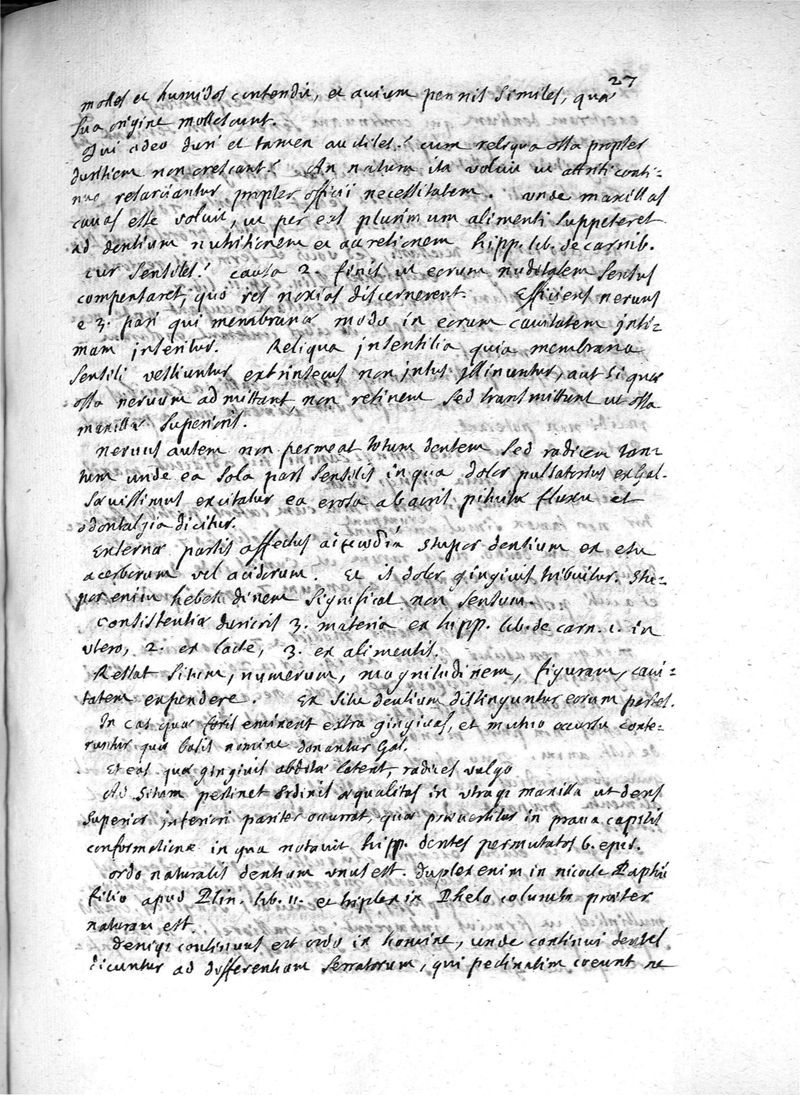 27
molles et humidos contendit, et avium pennis similes, qua
sua origine mollescunt.
Qui adeo duri et tamen auctiles? cum reliqua ossa propter
duritiem non crescant? An natura ita voluit ut attriti conti-
nuo resarciantur propter officii necessitatem. unde maxillas
cavas esse voluit, ut per eas plurimum alimenti suppeteret
ad dentium nutritionem et auctionem hipp. lib. de carnib.
cur sensiles? causa 2. finis ut eorum nuditatem sensus
compensaret, quo res noxias discernerent. Efficiens nervus
e 3. pari qui membranæ modo in eorum cavitatem inti-
mam inseritur. Reliqua insensilia quia membrana
sensili vestiuntur extrinsecus non intus illiniuntur, aut si quæ
ossa nervum admittant, non retinent sed transmittunt ut ossa
maxillæ superioris.
nervus autem non permeat totum dentem sed radicem tan-
tum unde ea sola pars sensilis in qua dolor pulsatorius ex Gal.
sævissimus excitatur ea erosa ab acris pituitæ fluxu et
odontalgia dicitur.
Externæ partis affectus stupor dentium ex esu
acerborum vel acidorum. Et is dolor gingivis tribuitur. Stu-
por enim hebetudinem significat non sensum.
Consistentia durioris 3. materia ex hipp. lib. de carn. 1. in
utero, 2. ex lacte, 3. ex alimentis.
Restat situm, numerum, magnitudinem, figuram, cavi-
tatem expendere. Ex situ dentium distinguntur eorum partes.
In eas quæ foris eminent extra gingivas, et mutuo occursu conte-
runtur quæ basis nomine donantur Gal.
Et eas quæ gingivis abditæ latent, radices vulgo
Ad situm pertinet ordinis æqualitas in utraq maxilla ut dens
superior inferiori pariter occurrat, quæ prævertitur in prava capitis
conformatione in qua notavit hipp. dentes permutatos 6. epid.
ordo naturalis dentium unus est. duplex enim in nicocle Paphii
filio apud Plin. lib. 11. et triplex in præter
naturam est.
Deniq continuus est ordo in homine, unde continui dentes
dicuntur ad differentiam serratorum, qui pectinatim coeunt ne